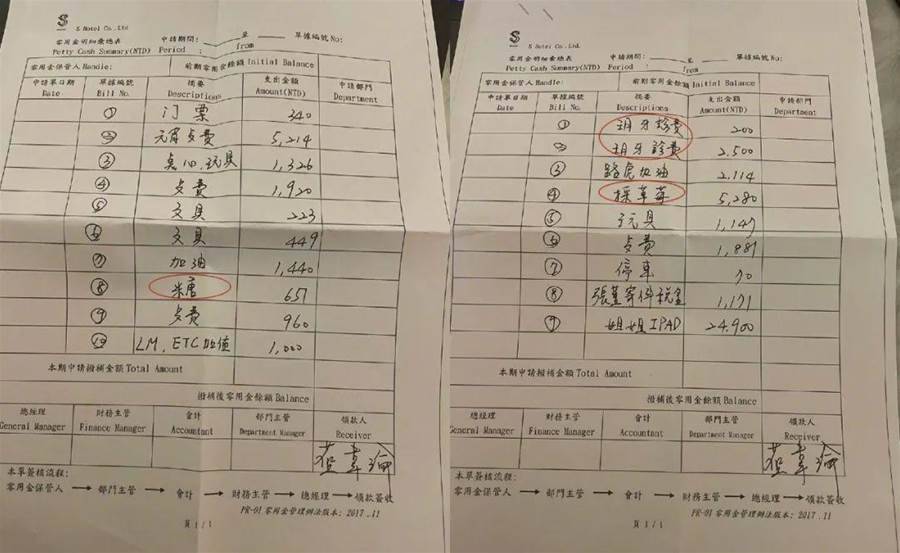 S
S Hotel Co.,Ltd
零用金明細彙總表 申請期間: 至 單據編號 No:
Petty Cash Summary(NTD) Period : from
零用金保管人 Handle: 前期零用金餘額 Initial Balance
申請單日期 單據編號 摘要 支出金額 申請部門
Date Bill No. Descriptions Amount(NTD) Department
① 门票 340
② 元宵歺费 5,214
③ 點心.玩具 1,326
④ 歺费 1,920
⑤ 文具 223
⑥ 文具 449
⑦ 加油 1,440
⑧ 糖 657
⑨ 歺费 960
⑩ LM, ETC 加值 1,000
本期申請撥補金額 Total Amount
撥補後零用金餘額 Balance
總經理 財務主管 會計 部門主管 領款人
General Manager Finance Manager Accountant Department Manager Receiver
本單簽核流程:
零用金保管人 → 部門主管 → 會計 → 財務主管 → 總經理 → 領款簽收
PR-01 零用金管理辦法版本: 2017.11
頁 1/1
S
S Hotel Co.,Ltd.
零用金明細彙總表 申請期間: 至 單據編號 No:
Petty Cash Summary(NTD) Period : from
零用金保管人 Handle: 前期零用金餘額 Initial Balance
申請單日期 單據編號 摘要 支出金額 申請部門
Date Bill No. Descriptions Amount(NTD) Department
① 玥牙診費 200
② 玥牙診費 2,500
③ 路虎加油 2,114
④ 採草莓 5,280
⑤ 玩具 1,147
⑥ 歺费 1,881
⑦ 停車 70
⑧ 張董寄件稅金 1,171
⑨ 姐姐IPAD 24,900
本期申請撥補金額 Total Amount
撥補後零用金餘額 Balance
總經理 財務主管 會計 部門主管 領款人
General Manager Finance Manager Accountant Department Manager Receiver
本單簽核流程:
零用金保管人 → 部門主管 → 會計 → 財務主管 → 總經理 → 領款簽收
PR-01 零用金管理辦法版本: 2017.11
頁 1/1